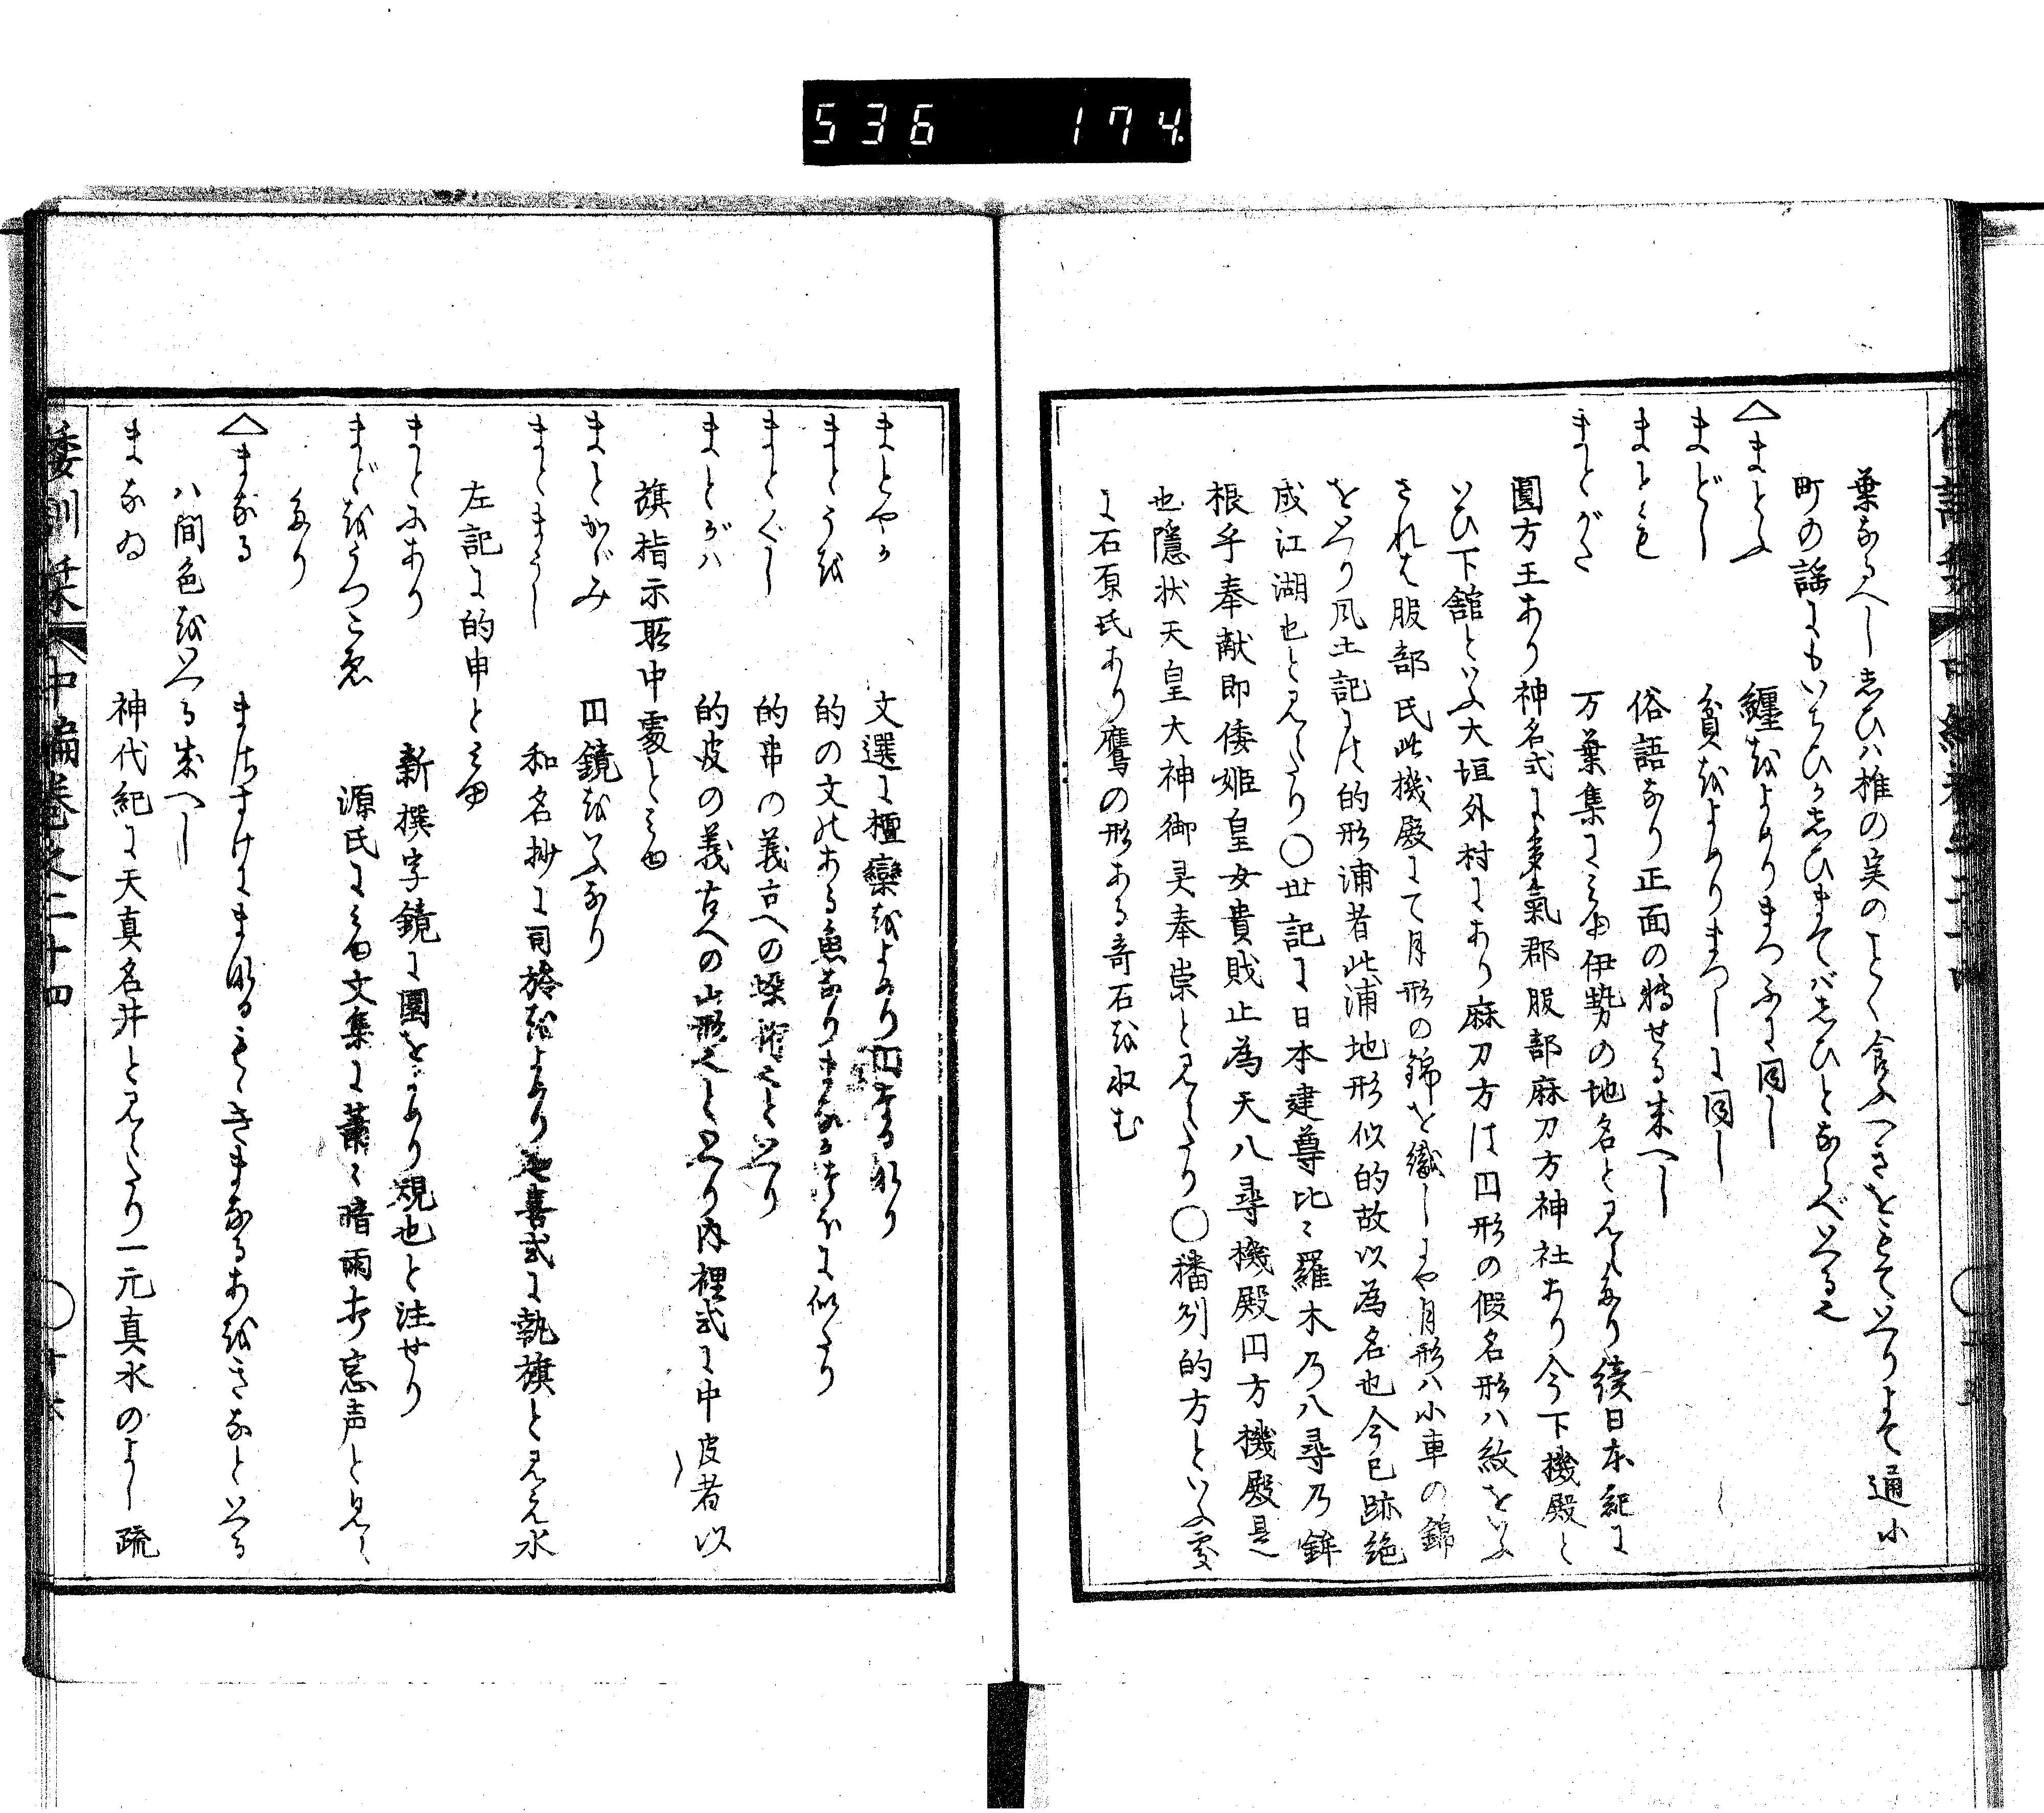 536 174
葉なるへし志ひハ椎の実のことく食ふへきをもていへりよて通小
町の謡にもいちひかしひまてばしひとならべいへる也
△まとふ 纏をよめりまつふに同し
まどし 貧をよめりまつしに同し
まとも 俗語なり正面の轉せる成へし
まとがた 万葉集にみゆ伊勢の地名と見えたり續日本紀に
圓方王あり神名式に多氣郡服部麻刀方神社あり今下機殿と
いひ下舘といふ大垣外村にあり麻刀方は円形の假名形ハ紋をいふ
されは服部氏此機殿にて月形の錦を織しにや月形ハ小車の錦
をいへり風土記には的形浦者此浦地形似的故以為名也今已跡絶
成江湖也と見えたり〇世記に日本建尊比〻羅木乃八尋乃鉾
根乎奉献即倭姫皇女貴賎止為天八尋機殿円方機殿是
也隠状天皇大神御灵奉崇と見えたり〇播州的方といふ處
に石原氏あり鷹の形ある奇石を収む
まとやか 文選に檀欒をよめり円なる也
まとうを 的の文のある魚なりまなかつほに似たり
まとぐし 的串の義古への
まとがハ 的皮の義古への山形也といへり内裡式に中皮者以
旗指示聅中處とみゆ
まとかゞみ 円鏡をいふなり
まとまうし 和名抄に司旍をよめり延喜式に執旗と見え水
左記に的申とみゆ
まとゐあり 新撰字鏡に圞をよめり規也と注せり
まどをうつこゑ 源氏にみゆ文集に蕭〻暗雨打窓声と見え
たり
△まなる またすけにま
ハ間色をいへる成へし
まなゐ 神代紀に天真名井と見えたり一元真水のよし疏
倭訓栞 中編巻之二十四